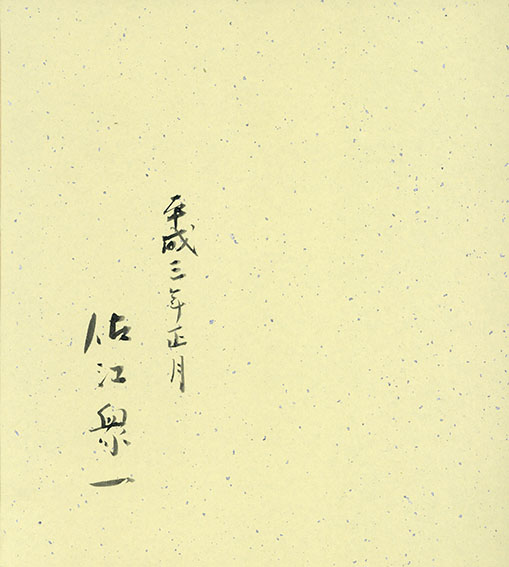 平成三年正月
佐江衆一